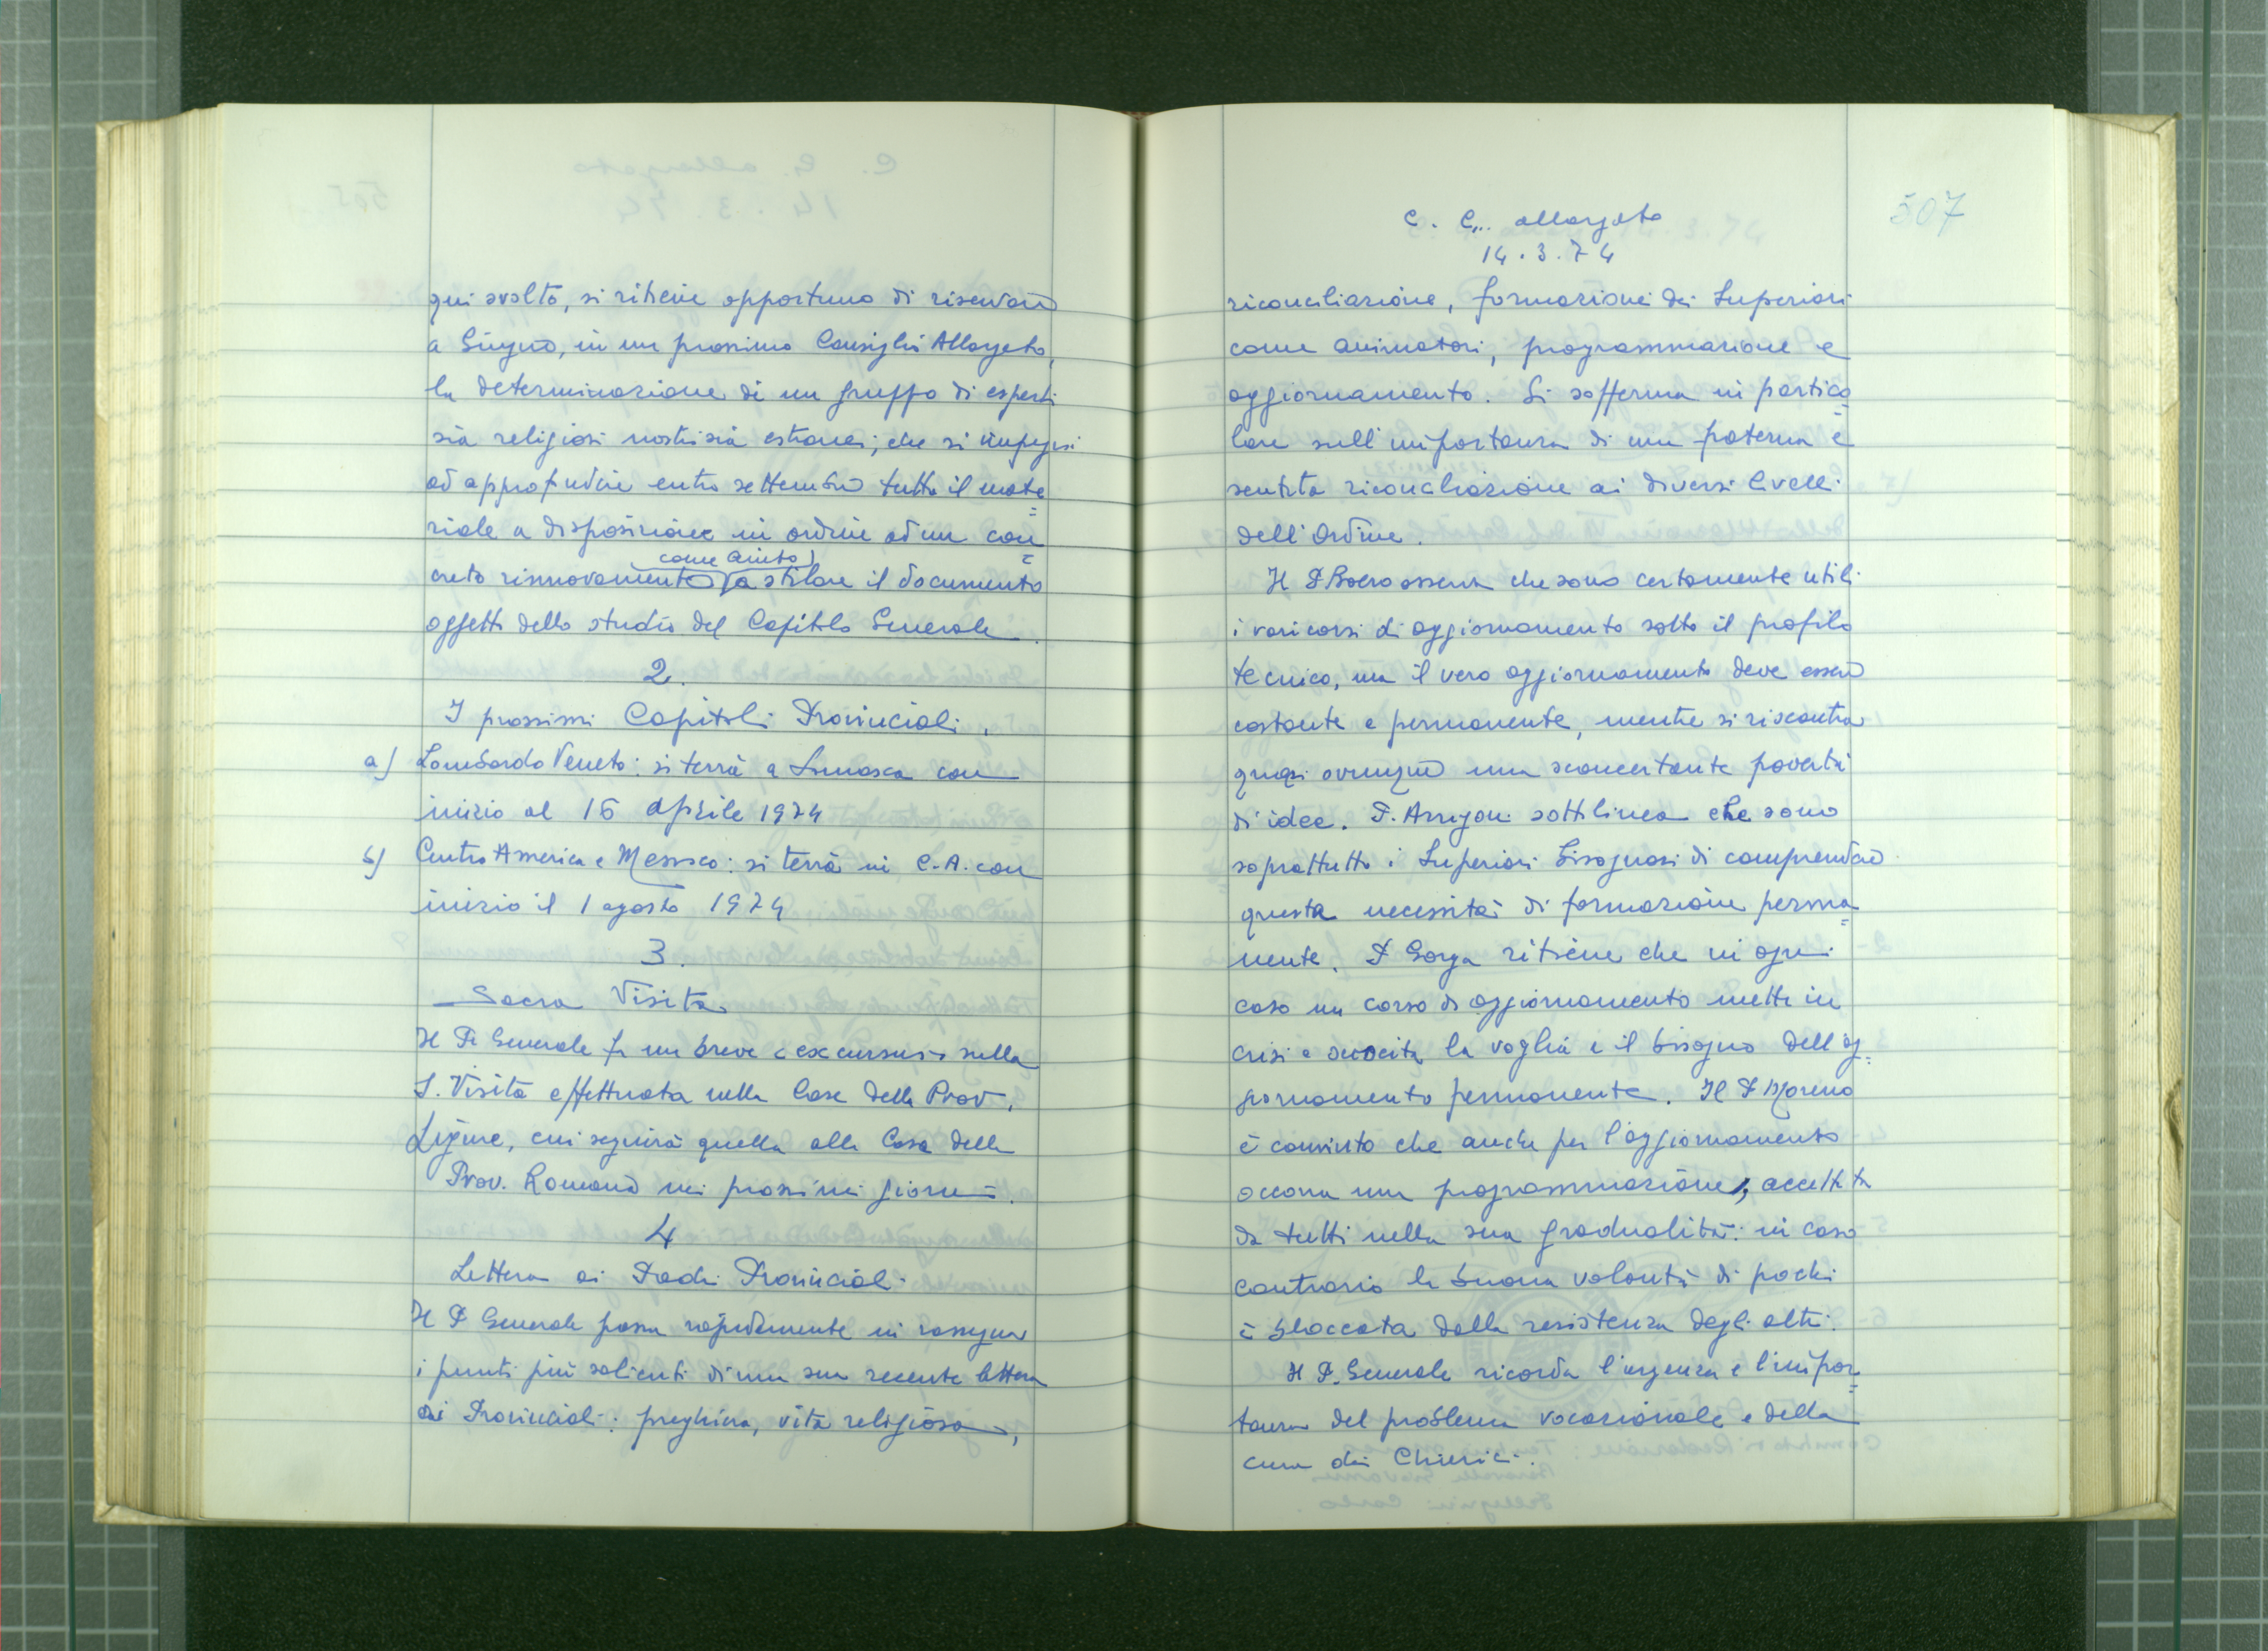 qui svolto, si ritiene opportuno di riservare
a Giugno, in un prossimo Consiglio Allargato,
la determinazione di un gruppo di esperti
sia religiosi nostri sia estranei; che si impegni
ad approfondire entro settembre tutto il mate=
riale a disposizione in ordine ad un con=
come aiuto
creto rinnovamento a stilare il documento
oggetto dello studio del Capitolo Generale.
2.
I prossimi Capitoli Provinciali.
a) Lombardo Veneto: si terrà a Somasca con
inizio al 16 aprile 1974
b) Centro America e Messico: si terrà in C.A. con
inizio il 1 agosto 1974
3.
Sacra Visita
Il P. Generale fa un breve "excursus" sulla
S. Visita effettuata nelle Case della Prov.
Ligure, cui seguirà quella alle Case della
Prov. Romana nei prossimi giorni.
4
Lettera ai Padri Provinciali
Il P. Generale passa rapidamente in rassegna
i punti più salienti di una sua recente lettera
ai Provinciali: preghiera, vita religiosa,
507
C. G. allargato
14.3.74
riconciliazione, formazione dei Superiori
come animatori, programmazione e
aggiornamento. Si sofferma in partico=
lare sull'importanza di una fraterna e
sentita riconciliazione ai diversi livelli
dell'Ordine.
Il P. Boero osserva che sono certamente utili
i vari corsi di aggiornamento sotto il profilo
tecnico, ma il vero aggiornamento deve essere
costante e permanente, mentre si riscontra
quasi ovunque una sconcertante povertà
di idee. P. Arrigoni sottolinea che sono
soprattutto i Superiori bisognosi di comprendere
questa necessità di formazione perma=
nente. P. Gorga ritiene che in ogni
caso un corso di aggiornamento mette in
crisi e suscita la voglia e il bisogno dell'ag=
giornamento permanente. Il P. Moreno
è convinto che anche per l'aggiornamento
occorra una programmazione, accettata
da tutti nella sua gradualità: in caso
contrario la buona volontà di pochi
è bloccata dalla resistenza degli altri.
Il P. Generale ricorda l'urgenza e l'impor=
tanza del problema vocazionale e della
cura dei Chierici.